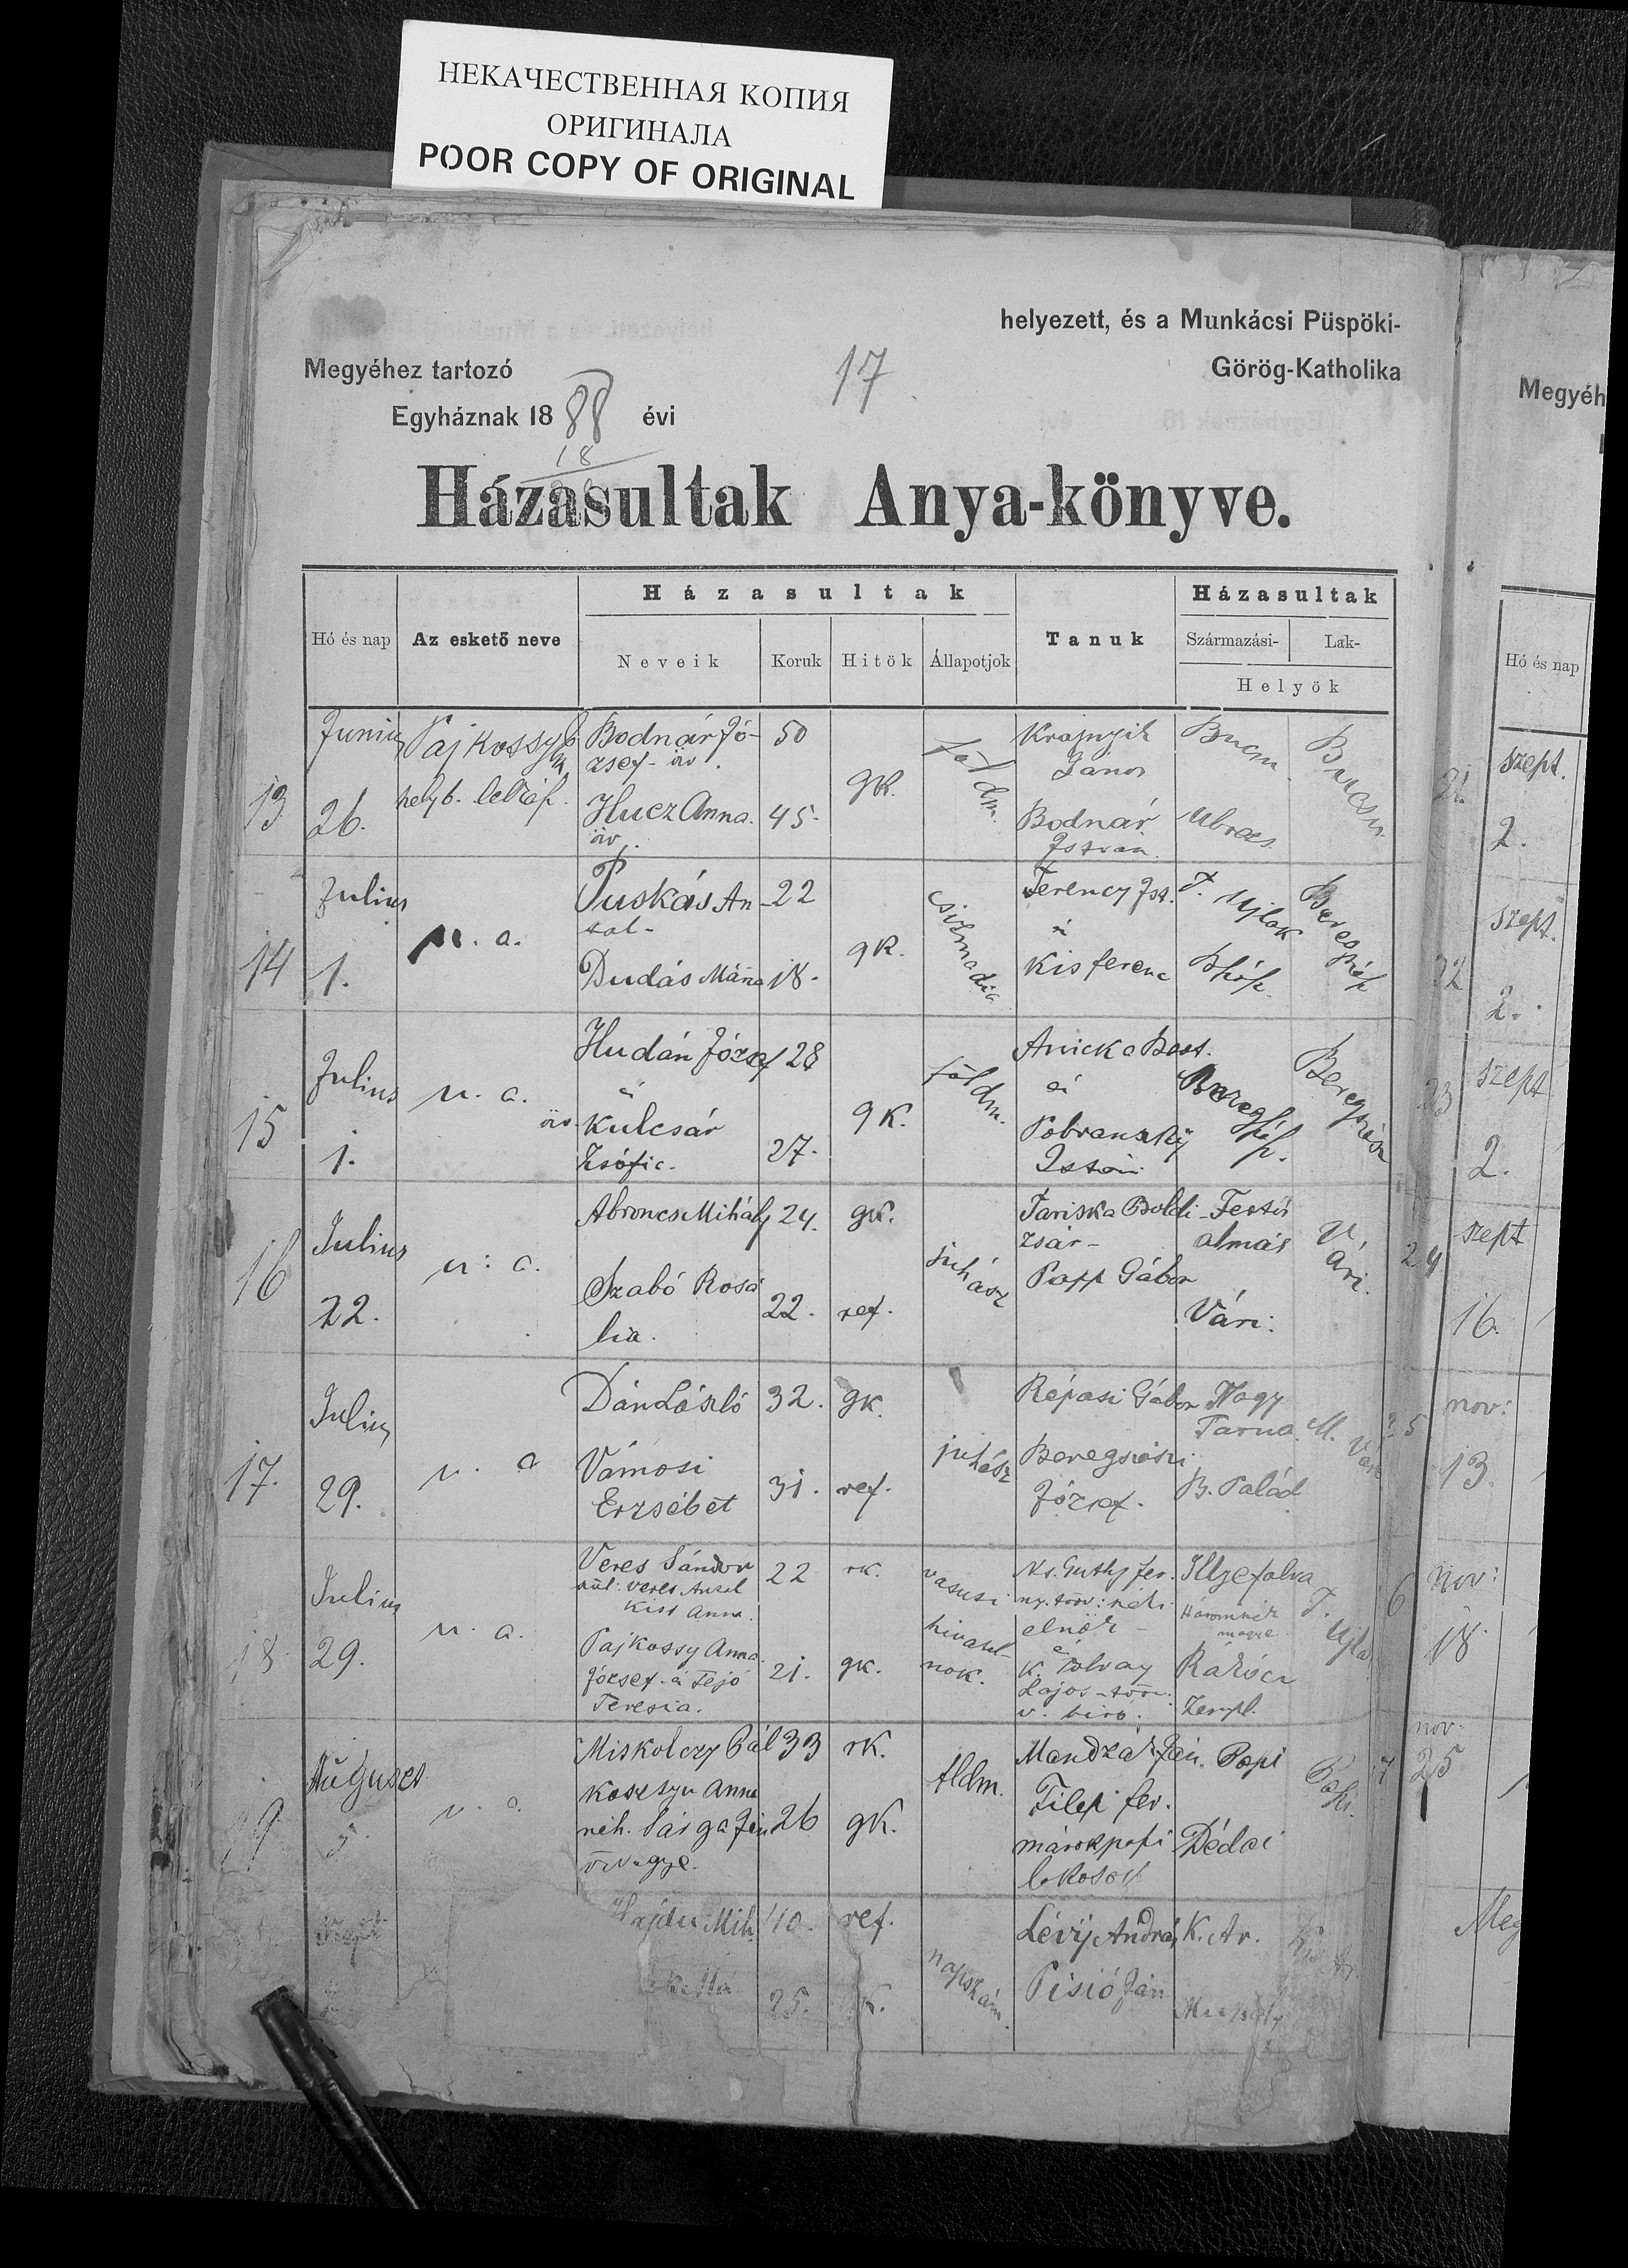 НЕКАЧЕСТВЕННАЯ КОПИЯ
ОРИГИНАЛА
POOR COPY OF ORIGINAL
helyezett, és a Munkácsi Püspöki-
Megyéhez tartozó
17
Görög-Katholika
Egyháznak 1888 évi
18
Házasultak Anya-könyve.
Hó és nap
Az eskető neve
Házasultak
Neveik
Koruk
Hitök
Állapotjok
Tanuk
Házasultak
Származási-
Lak-
Helyök
13
Junius
26.
Pajkossy
helyb. lelk
Bodnár Jó-
zsef - öv.
50
Hucz Anna.
öv.
45.
gk.
földm.
Krajnyik
Janos
Bodnár
Istvan
Bucsu
14
Julius
1.
u. a.
Puskás An-
tal-
22
Dudás Mária
18.
gk.
csizmadia
Ferenczy Ist.
és
Kis ferenc
T. Ujlak
15
Julius
1.
u. a.
Hudán József
28
és
öv. Kulcsár
Zsófia.
27.
gk.
földm.
és
Beregszász
16
Julius
22.
u. a.
Abroncs Mihály
24.
gk.
Szabó Rosá
lia.
22.
ref.
juhász
Tariska Boldi-
zsár-
Papp Gábor
almás
Vári.
Vári.
17.
Julius
29.
u. a
Dán László
32.
gk.
Vámosi
Erzsébet
31.
ref.
juhász
Répasi Gábor
Beregszászi
József.
Nagy
Tarna
B. Palád
M. Vári
18
Julius
29.
u. a.
Veres Sándor
Kiss Anna.
22
rk.
Pajkossy Anna
József és Fejó
Teresia.
21.
gk.
vasusi
hivatal-
nok.
elnök
és
K. Tolvay
Lajos - törv.
v. biró.
Illyefalva
Háromszék
megye
Rákócz
Zempl.
T. Ujla
19
August
5.
u. a.
Miskolczy Pál
33
rk.
Anna
neh. Sárga Ján
özvegye.
26
gk.
fldm.
Mandzák Ján.
Filep fer.
márokpapi
lakosok
Papi
Dédai
Papi.
Sept
Hajdu Mih
40.
ref.
25.
k.
napszám.
Lévij András
Pisió Ján
K. Ar.
Megyéh
Hó és nap
21.
szept.
2.
22
szept.
2.
23
szept
2.
24
szept
16.
25
nov:
13.
6
nov:
18
7
nov.
25
Meg